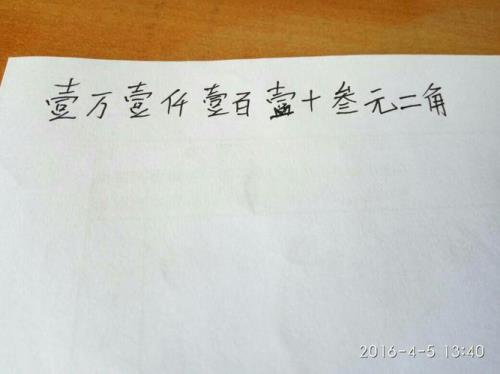 壹万壹仟壹百壹十叁元二角
2016-4-5 13:40